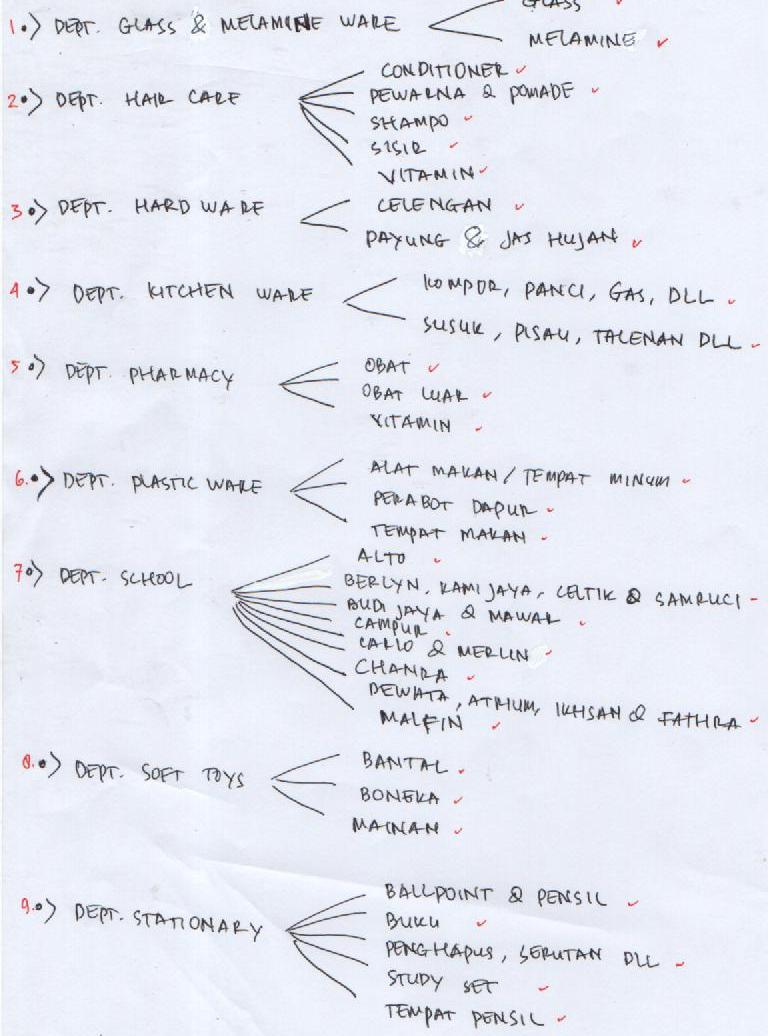 GLASS
1. DEPT. GLASS & MELAMINE WARE
MELAMINE
CONDITIONER
2. DEPT. HAIR CARE
PEWARNA & POMADE
SHAMPO
SISIR
VITAMIN
3. DEPT. HARD WARE
CELENGAN
PAYUNG & JAS HUJAN
4. DEPT. KITCHEN WARE
KOMPOR, PANCI, GAS, DLL
SUSUK, PISAU, TALENAN DLL
5. DEPT. PHARMACY
OBAT
OBAT LUAR
VITAMIN
6. DEPT. PLASTIC WARE
ALAT MAKAN / TEMPAT MINUM
PERABOT DAPUR
TEMPAT MAKAN
7. DEPT. SCHOOL
ALTO
BERLYN, KAMI JAYA, CELTIK & SAMRUCI
BUDI JAYA & MAWAR
CAMPUR
CARLO & MERLIN
CHANRA
DEWATA, ATRIUM, IKHSAN & FATHRA
MALFIN
8. DEPT. SOFT TOYS
BANTAL
BONEKA
MAINAN
9. DEPT. STATIONARY
BALLPOINT & PENSIL
BUKU
PENGHAPUS, SERUTAN DLL
STUDY SET
TEMPAT PENSIL